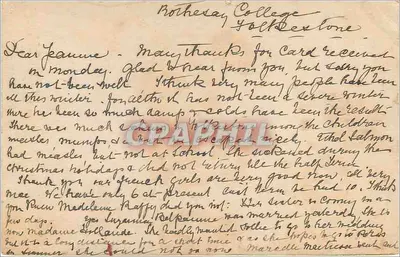 Rothesay College
Folkestone
Dear Jeanne - Many thanks for card received
on Monday. Glad to hear from you, but sorry you
have not been well. I think very many people have been
ill this winter. for altho' it has not been a severe winter
there has been so much damp & colds have been the result
There was much among the children
measles, mumps, & Ethel Salmon
had measles but not at School. She sickened during the
Christmas holidays & did not return till the half term
Thank you our french girls are very good now, all very
nice. We have only 6 at present last term we had 10. I think
you knew Madeleine did you not? Her sister is coming in a
few days. Suzanne was married yesterday. She is
now madame She kindly wanted to go to her wedding
but it is a long distance for a short time & so she hopes to go
in summer she could not go now - Marcelle
CPARAMA